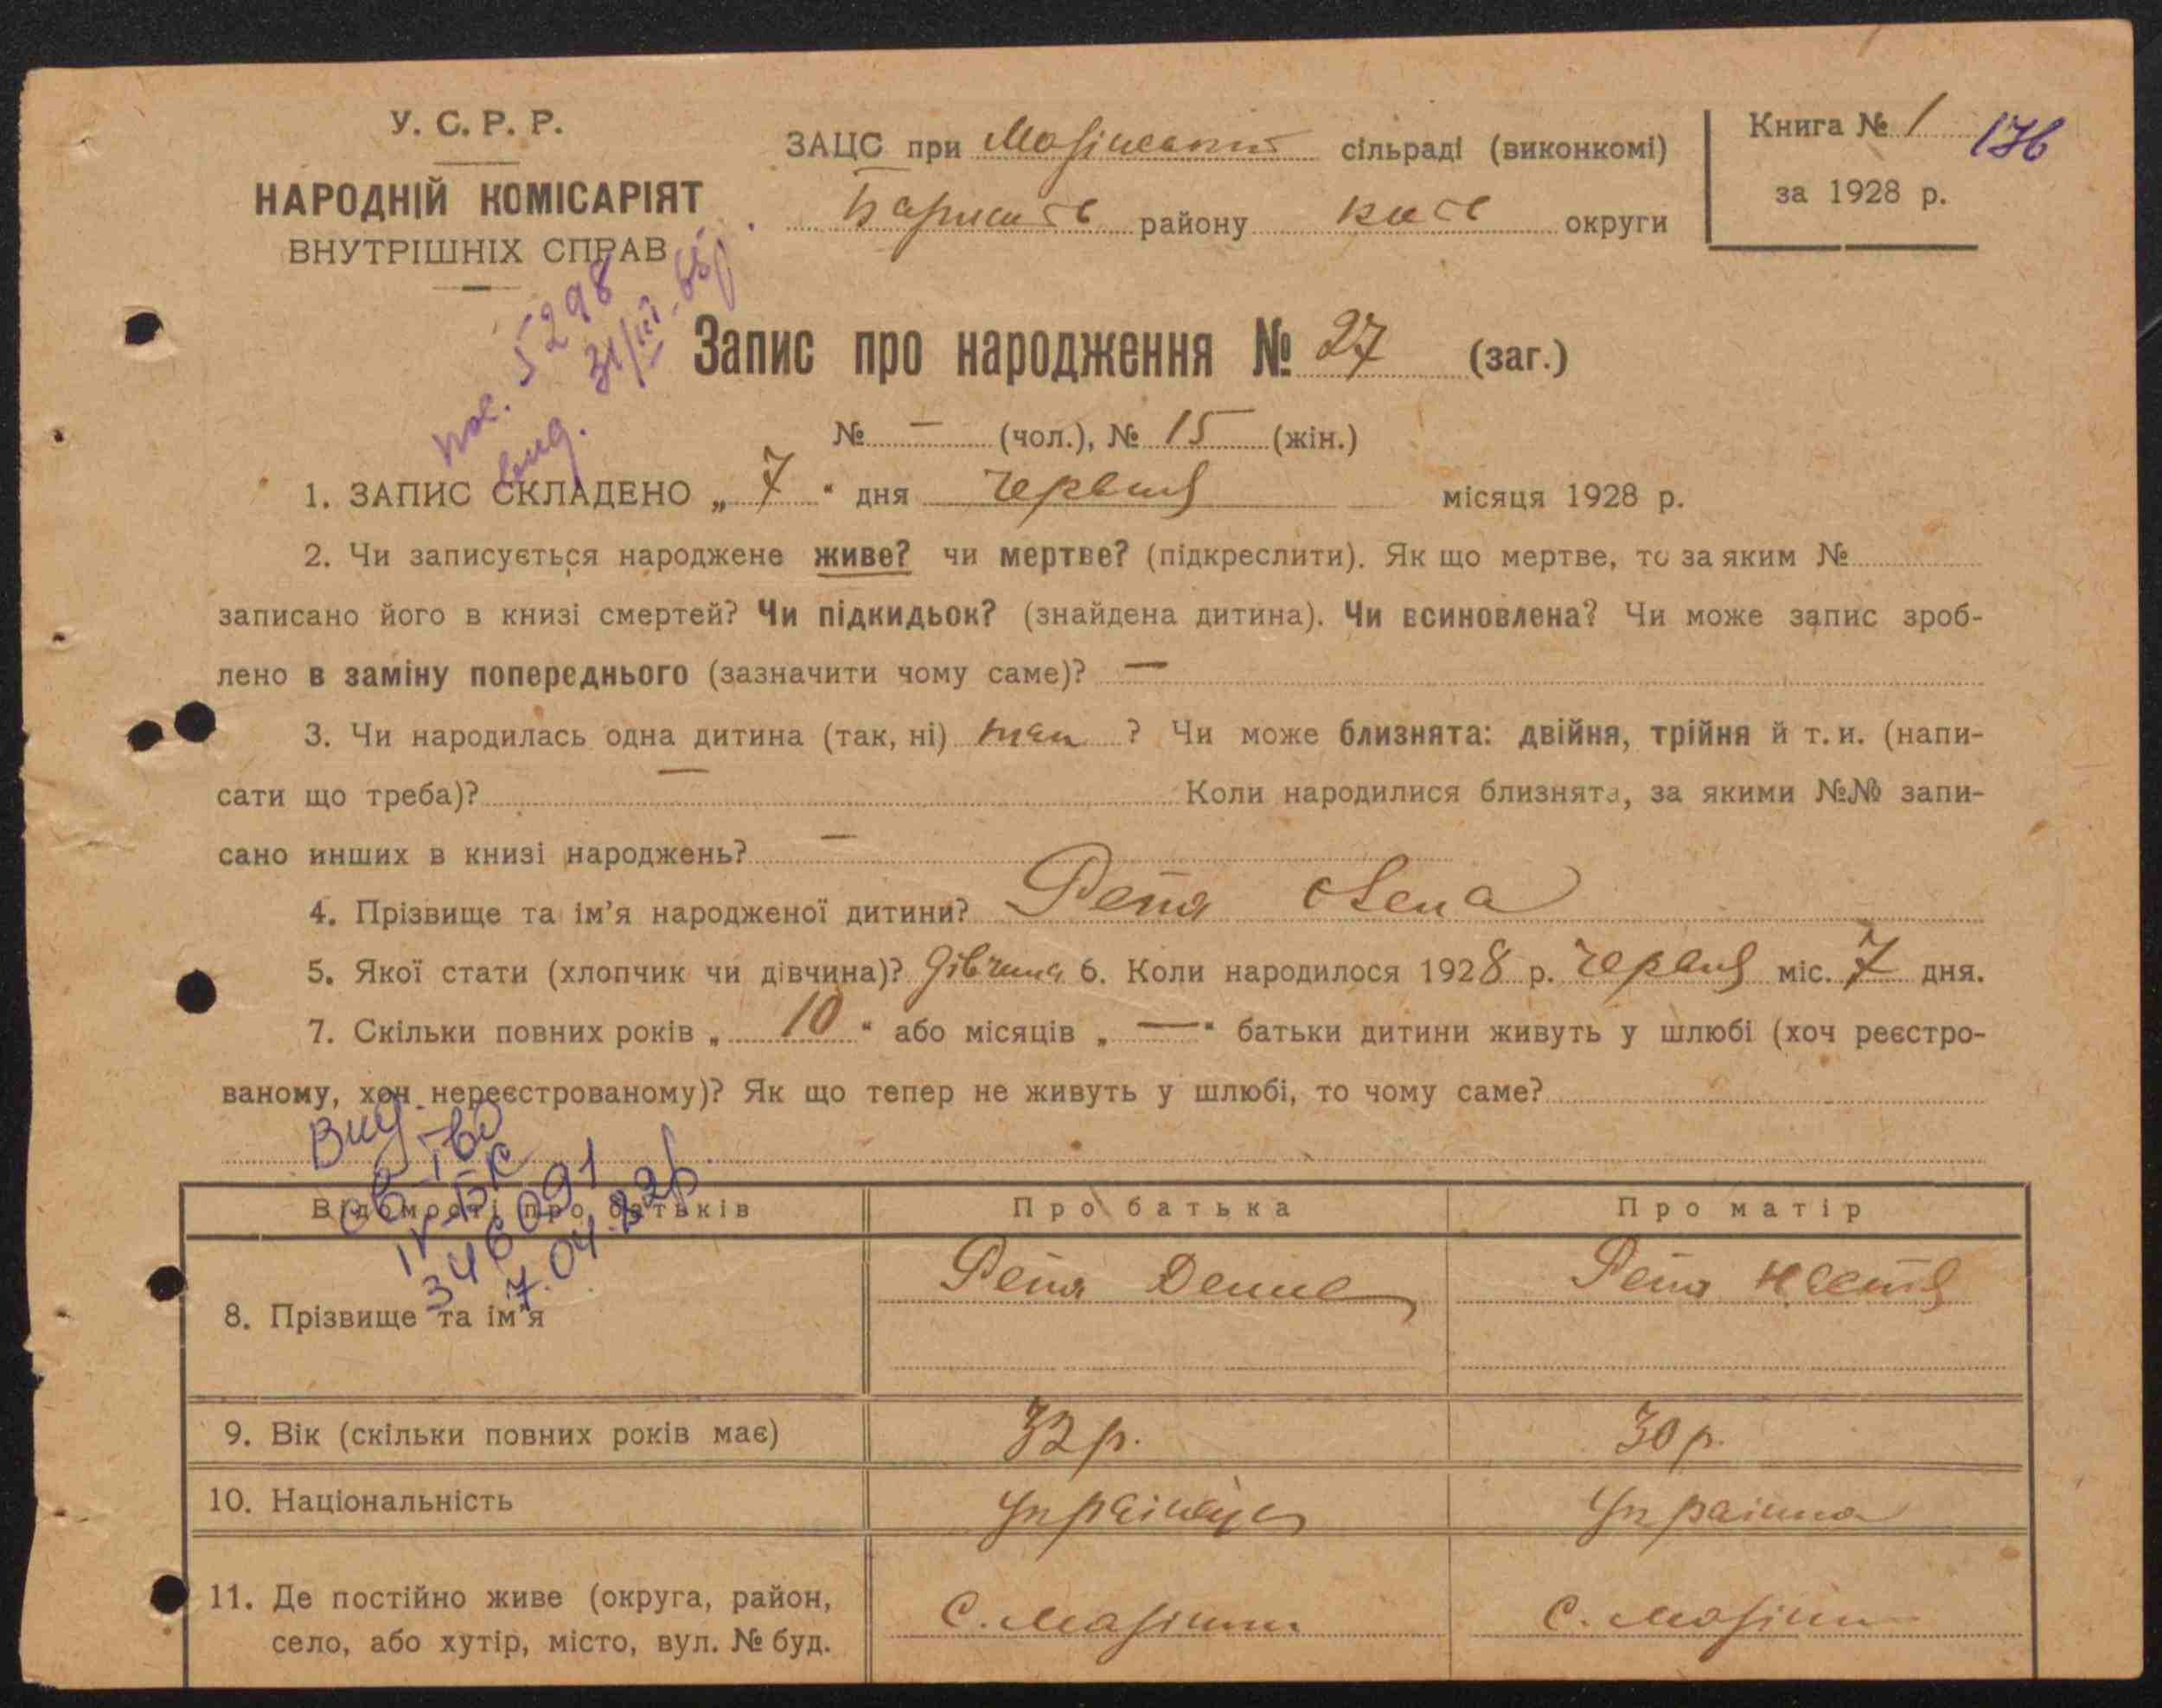 У. С. Р. Р.
НАРОДНІЙ КОМІСАРІЯТ
ВНУТРІШНІХ СПРАВ
ЗАЦС при сільраді (виконкомі)
району округи
Книга № 1 176
за 1928 р.
5298
31/III-
Запис про народження № 27 (заг.)
№ — (чол.), № 15 (жін.)
1. ЗАПИС СКЛАДЕНО „ 7 “ дня червня місяця 1928 р.
2. Чи записується народжене живе? чи мертве? (підкреслити). Як що мертве, то за яким №
записано його в книзі смертей? Чи підкидьок? (знайдена дитина). Чи всиновлена? Чи може запис зроб-
лено в заміну попереднього (зазначити чому саме)? —
3. Чи народилась одна дитина (так, ні) так ? Чи може близнята: двійня, трійня й т. и. (напи-
сати що треба)? — Коли народилися близнята, за якими №№ запи-
сано инших в книзі народжень? —
4. Прізвище та ім’я народженої дитини? Репя
5. Якої стати (хлопчик чи дівчина)? дівчина 6. Коли народилося 1928 р. червня міс. 7 дня.
7. Скільки повних років „ 10 “ або місяців „ — “ батьки дитини живуть у шлюбі (хоч реєстро-
ваному, хоч нереєстрованому)? Як що тепер не живуть у шлюбі, то чому саме?
Вид.
св-во
IV-БК
346091
7.04.
Відомості про батьків Про батька Про матір
8. Прізвище та ім’я Репя Денис Репя Настя
9. Вік (скільки повних років має) 32 р. 30 р.
10. Національність Українець Українка
11. Де постійно живе (округа, район, с. с.
село, або хутір, місто, вул. № буд.